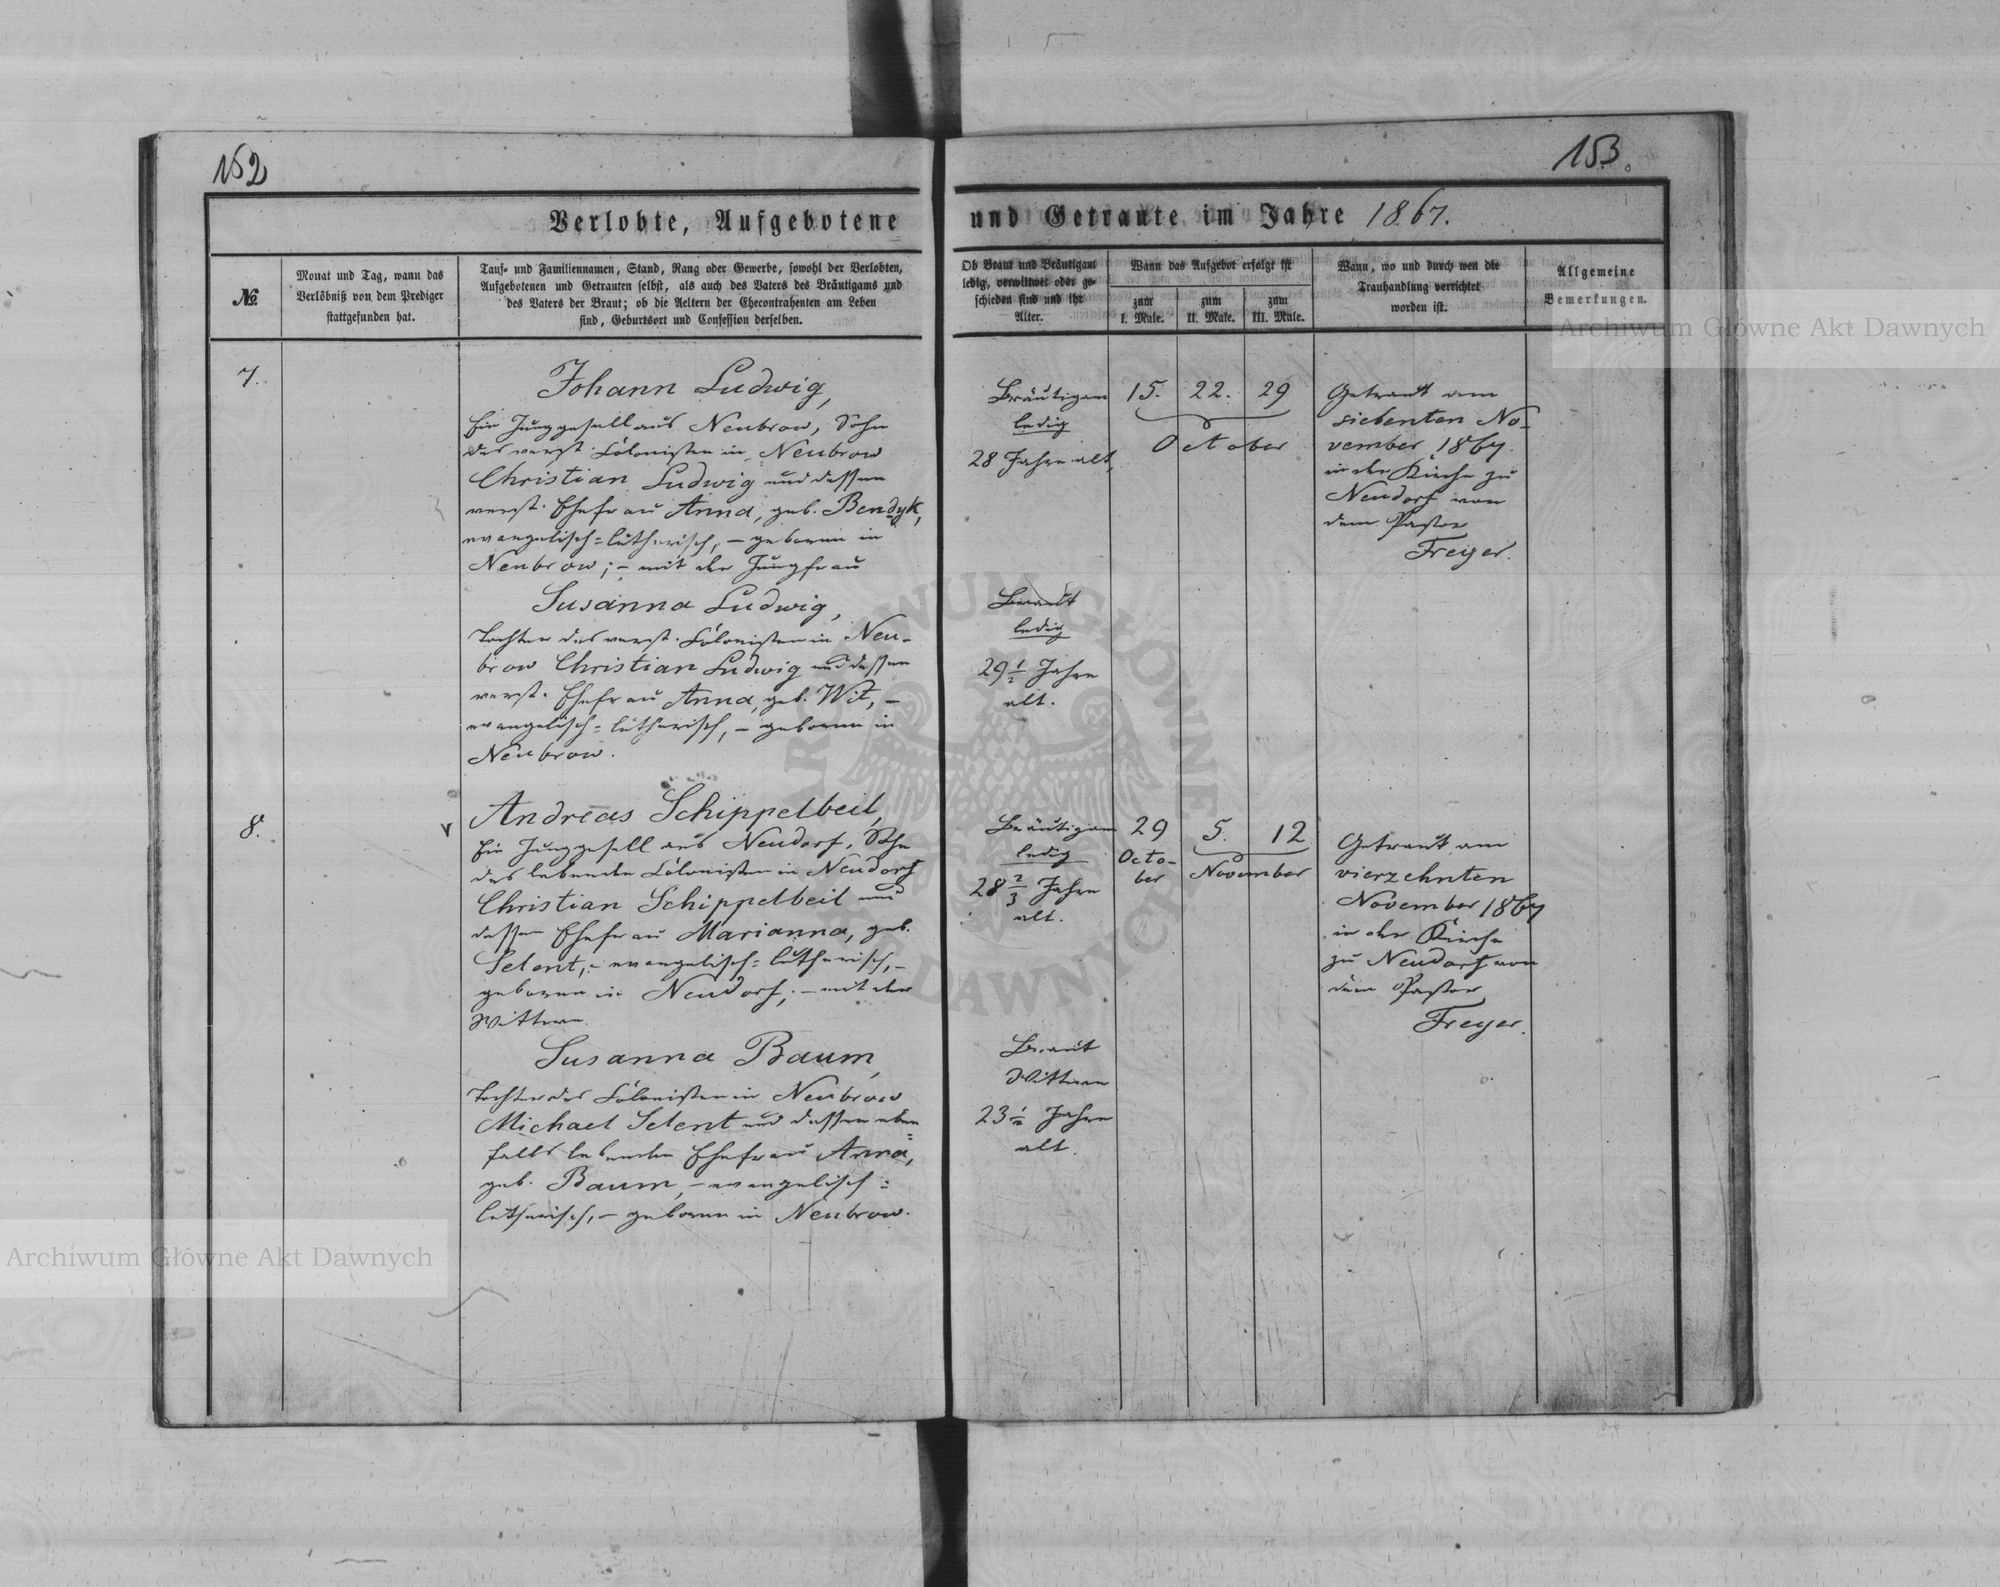 152
153.
Verlobte, Aufgebotene und Getraute im Jahre 1867.
№
Monat und Tag, wann das
Verlöbniß von dem Prediger
stattgefunden hat.
Tauf- und Familiennamen, Stand, Rang oder Gewerbe, sowohl der Verlobten,
Aufgebotenen und Getrauten selbst, als auch des Vaters des Bräutigams und
des Vaters der Braut; ob die Aeltern der Ehecontrahenten am Leben
sind, Geburtsort und Confession derselben.
Ob Braut und Bräutigam
ledig, verwittwet oder ge-
schieden sind und ihr
Alter.
Wann das Aufgebot erfolgt ist
zum
I. Male.
zum
II. Male.
zum
III. Male.
Wann, wo und durch wen die
Trauhandlung verrichtet
worden ist.
Allgemeine
Bemerkungen.
7.
Johann Ludwig,
Ein Junggesell aus Neubrow, Sohn
des verst. Colonisten in Neubrow
Christian Ludwig und dessen
verst. Ehefrau Anna, geb. Bendyk,
evangelisch=lutherisch, – geboren in
Neubrow; – mit der Jungfrau
Susanna Ludwig,
Tochter des verst. Colonisten in Neu-
brow Christian Ludwig und dessen
verst. Ehefrau Anna, geb. Wit, –
evangelisch=lutherisch, – geboren in
Neubrow.
Bräutigam
ledig
28 Jahre alt,
Braut
ledig
29 1/2 Jahre
alt.
15. 22. 29
October
Getraut am
siebenten No-
vember 1867.
in der Kirche zu
Neudorf von
dem Pastor
Freyer.
8.
Andreas Schippelbeil,
Ein Junggesell aus Neudorf, Sohn
des lebenden Colonisten in Neudorf
Christian Schippelbeil und
dessen Ehefrau Marianna, geb.
Selent, – evangelisch=lutherisch, –
geboren in Neudorf, – mit der
Wittwe
Susanna Baum,
Tochter des Colonisten in Neubrow
Michael Selent und dessen eben=
falls lebenden Ehefrau Anna,
geb. Baum, – evangelisch=
lutherisch, – geboren in Neubrow.
Bräutigam
ledig
28 2/3 Jahre
alt.
Braut
Wittwe
23 1/2 Jahre
alt.
29 5. 12
Octo-
ber
November
Getraut am
vierzehnten
November 1867
in der Kirche
zu Neudorf von
dem Pastor
Freyer.
Archiwum Główne Akt Dawnych
Archiwum Główne Akt Dawnych
ARCHIWUM GŁÓWNE AKT DAWNYCH